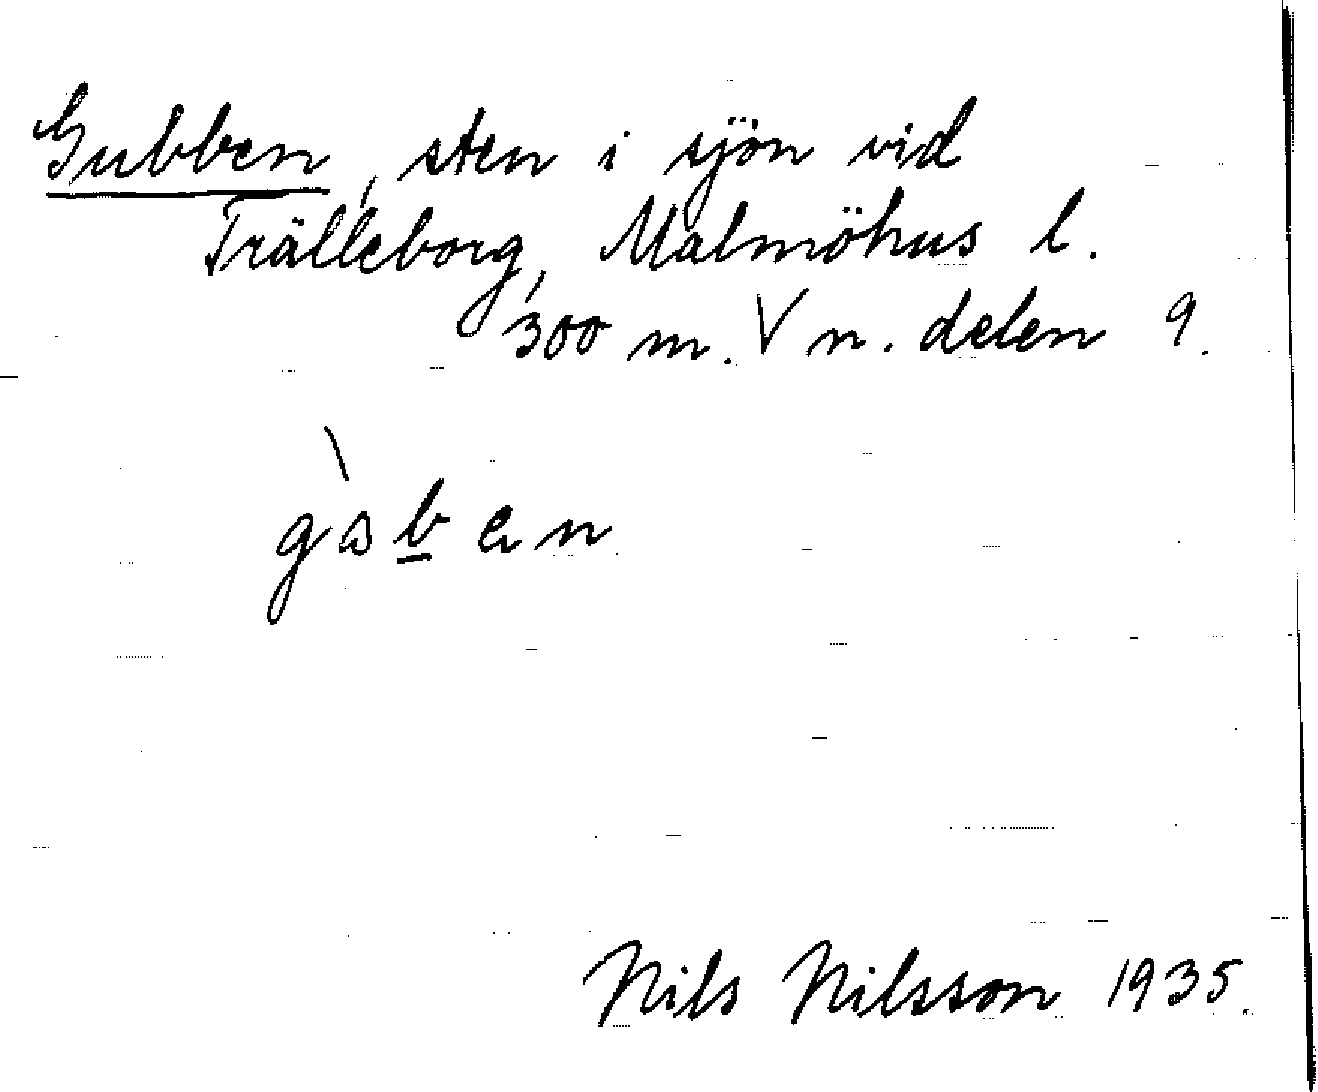 Gubben, sten i sjön vid
Trälleborg, Malmöhus l.
300 m. V n. delen 9.
Nils Nilsson 1935.